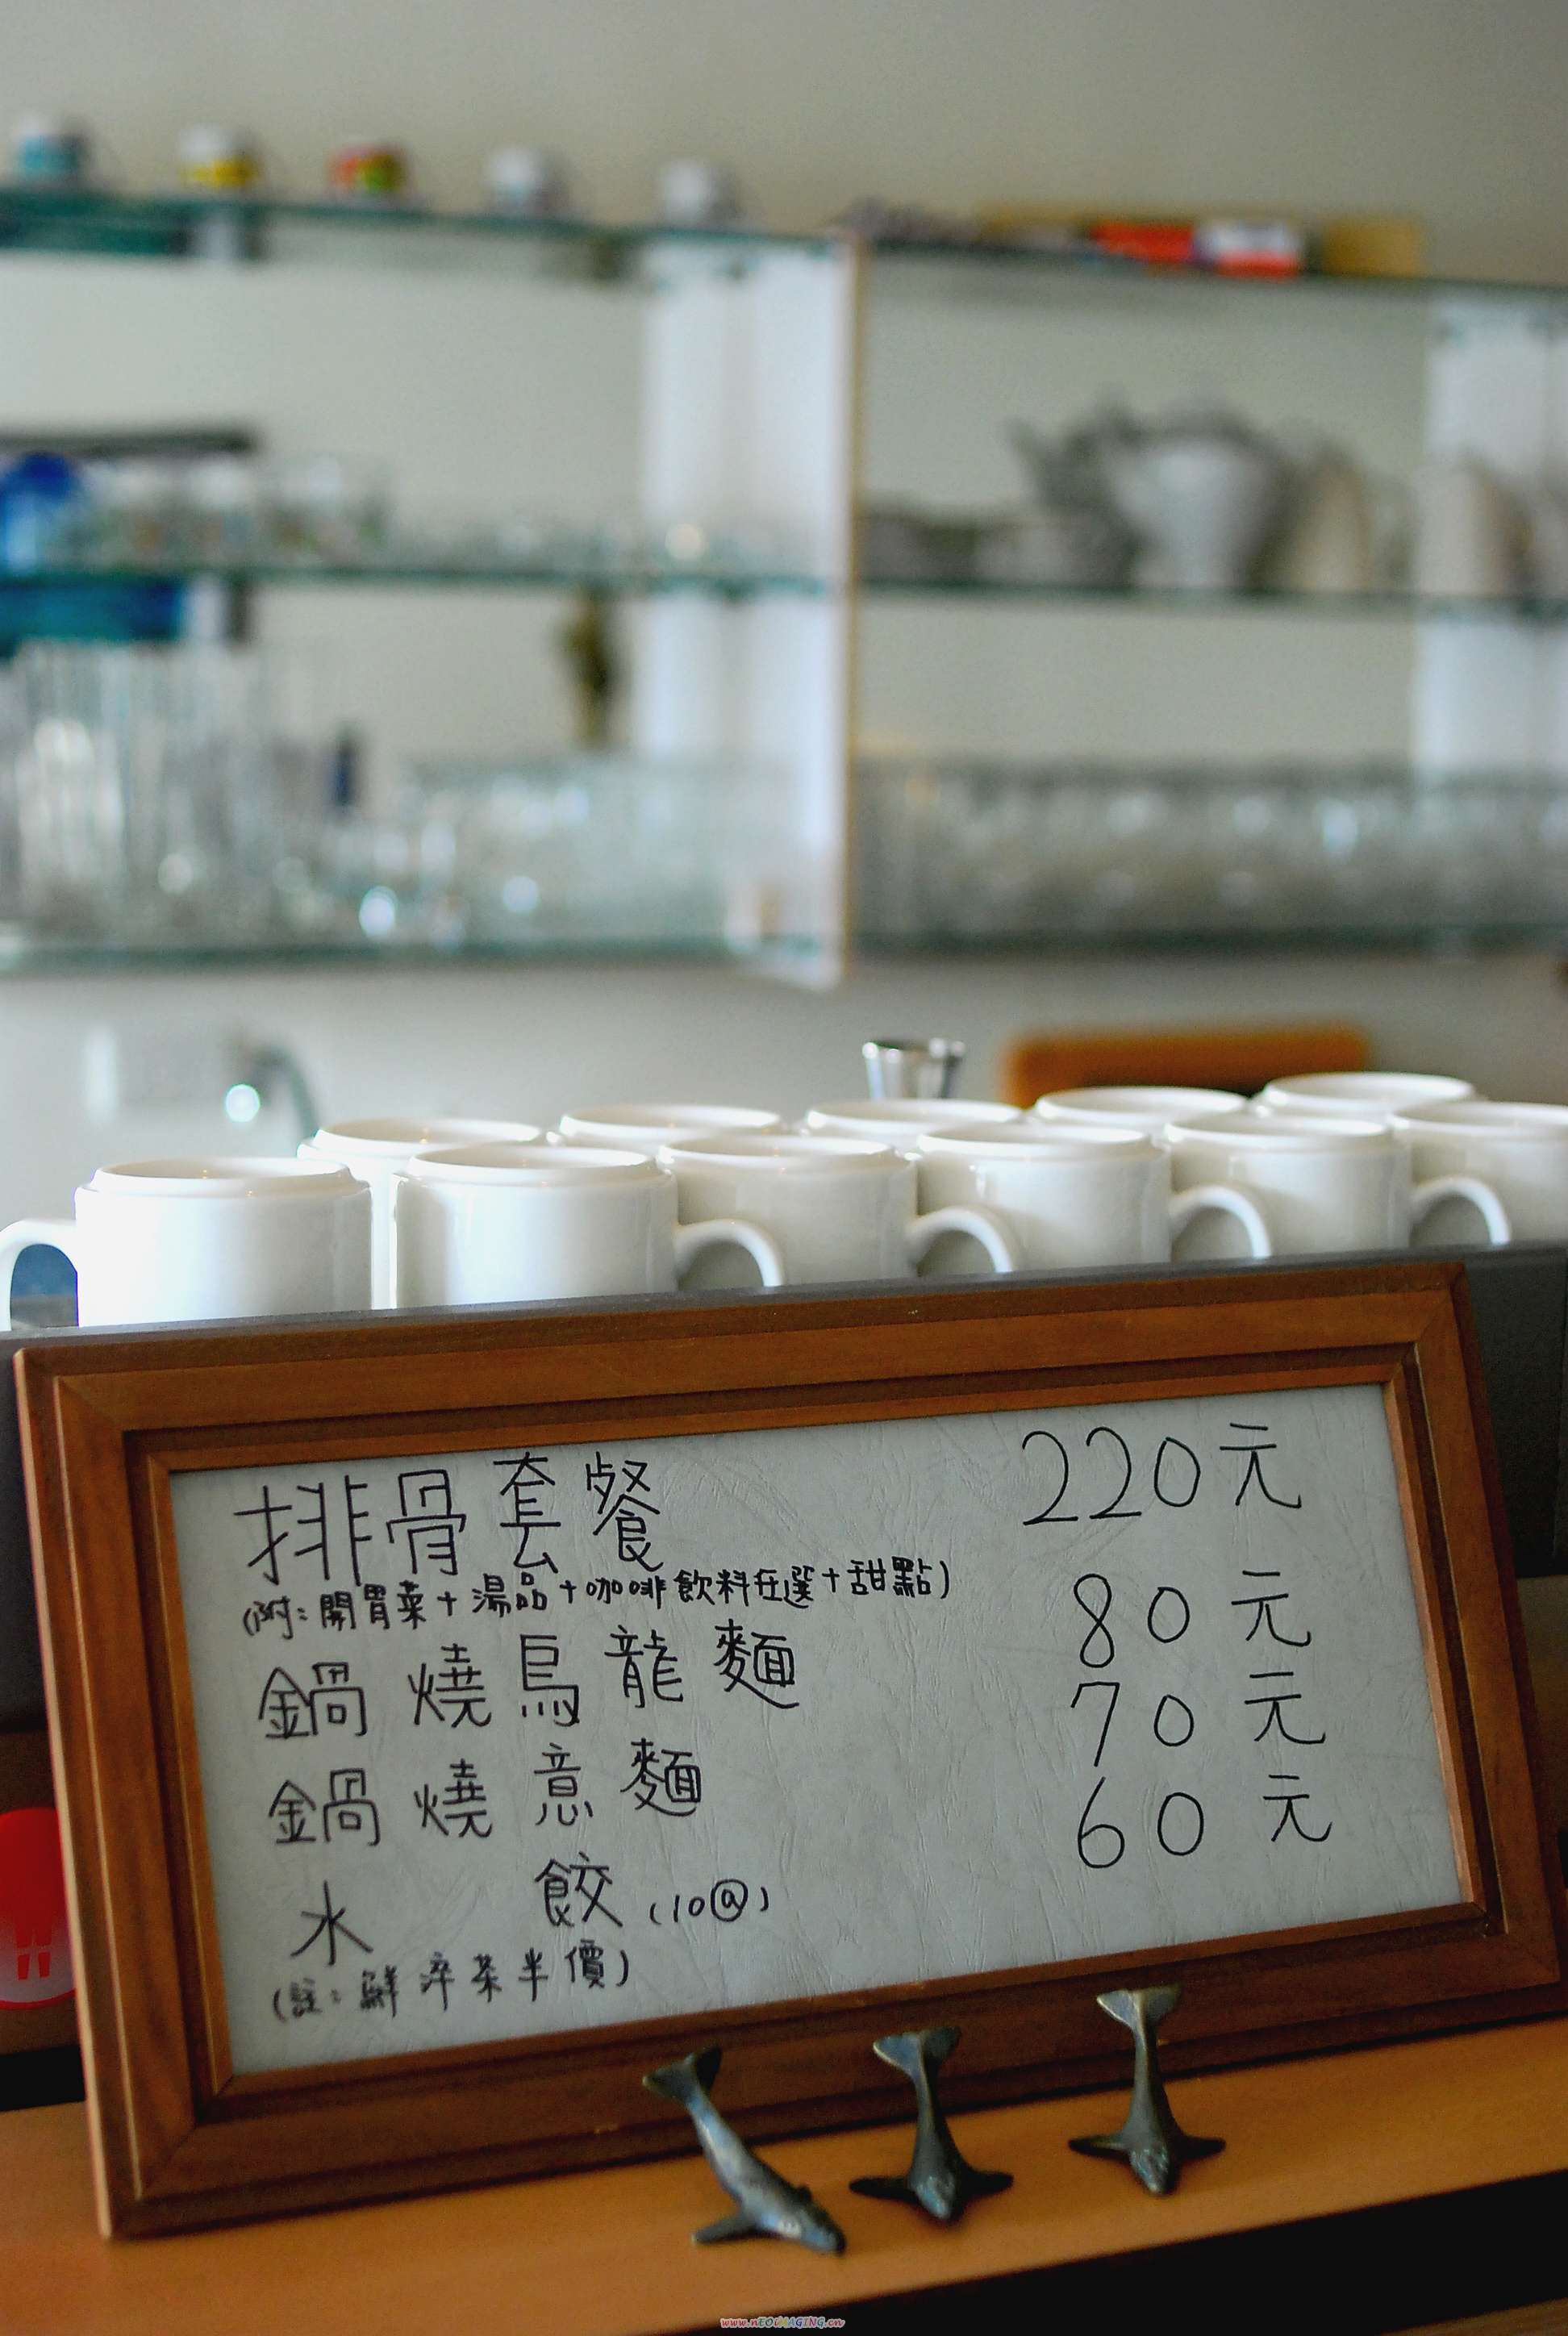 排骨套餐 220元
(附:開胃菜+湯品+咖啡飲料任選+甜點)
鍋燒烏龍麵 80元
鍋燒意麵 70元
水餃(10@) 60元
(註:鮮淬茶半價)
www.nEOiMAGING.cn